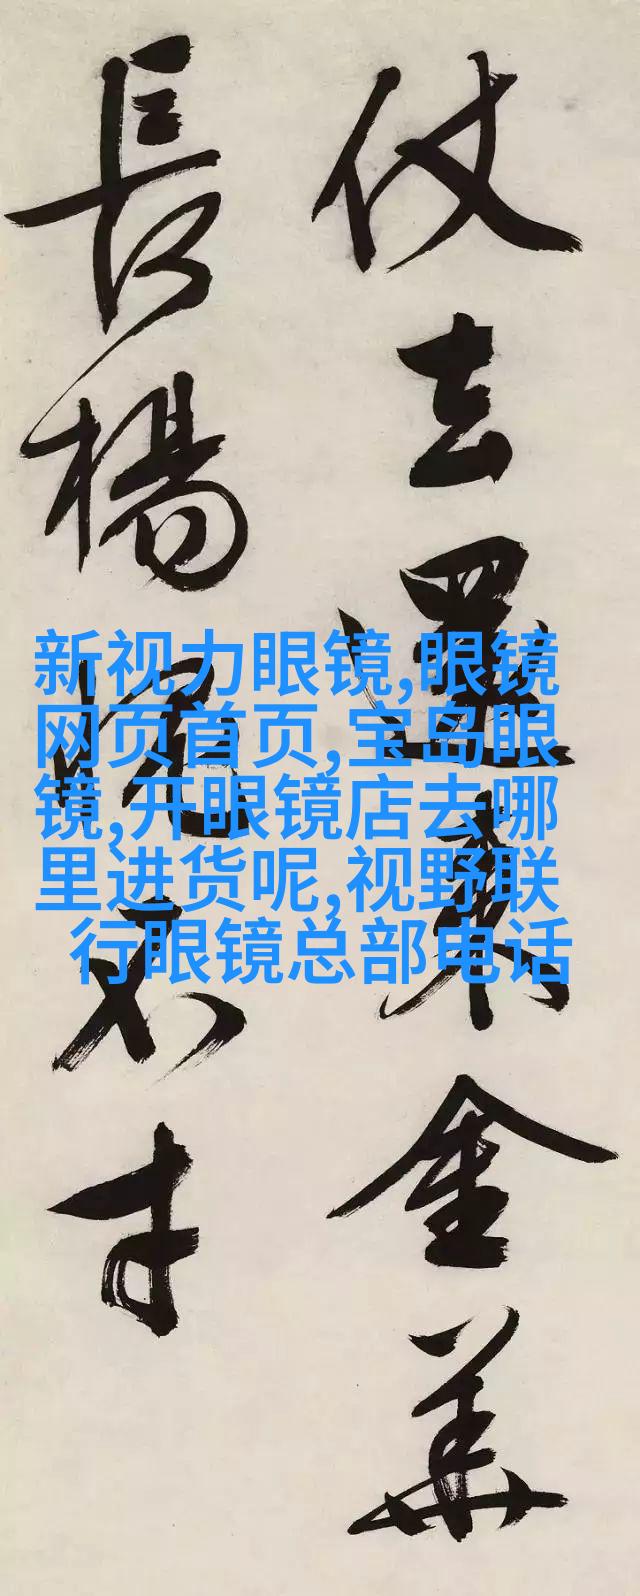 仗去還來金華
長楊愧不才
新视力眼镜,眼镜
网页首页,宝岛眼
镜,开眼镜店去哪
里进货呢,视野联
行眼镜总部电话